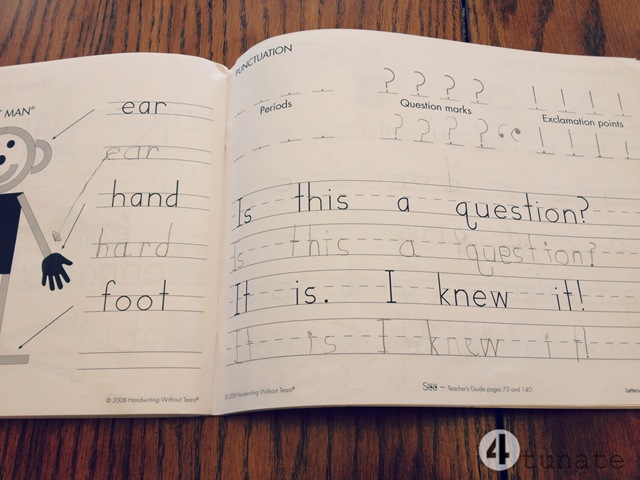 T MAN®
ear
ear
hand
hard
foot
© 2008 Handwriting Without Tears®
PUNCTUATION
. . . .
Periods
. . . .
? ? ? ?
Question marks
? ? ? ?
! ! ! !
Exclamation points
! ! ! !
Is this a question?
Is this a question?
It is. I knew it!
It is I knew it!
© 2008 Handwriting Without Tears®
See – Teacher's Guide pages 73 and 140.
Letters
4tunate